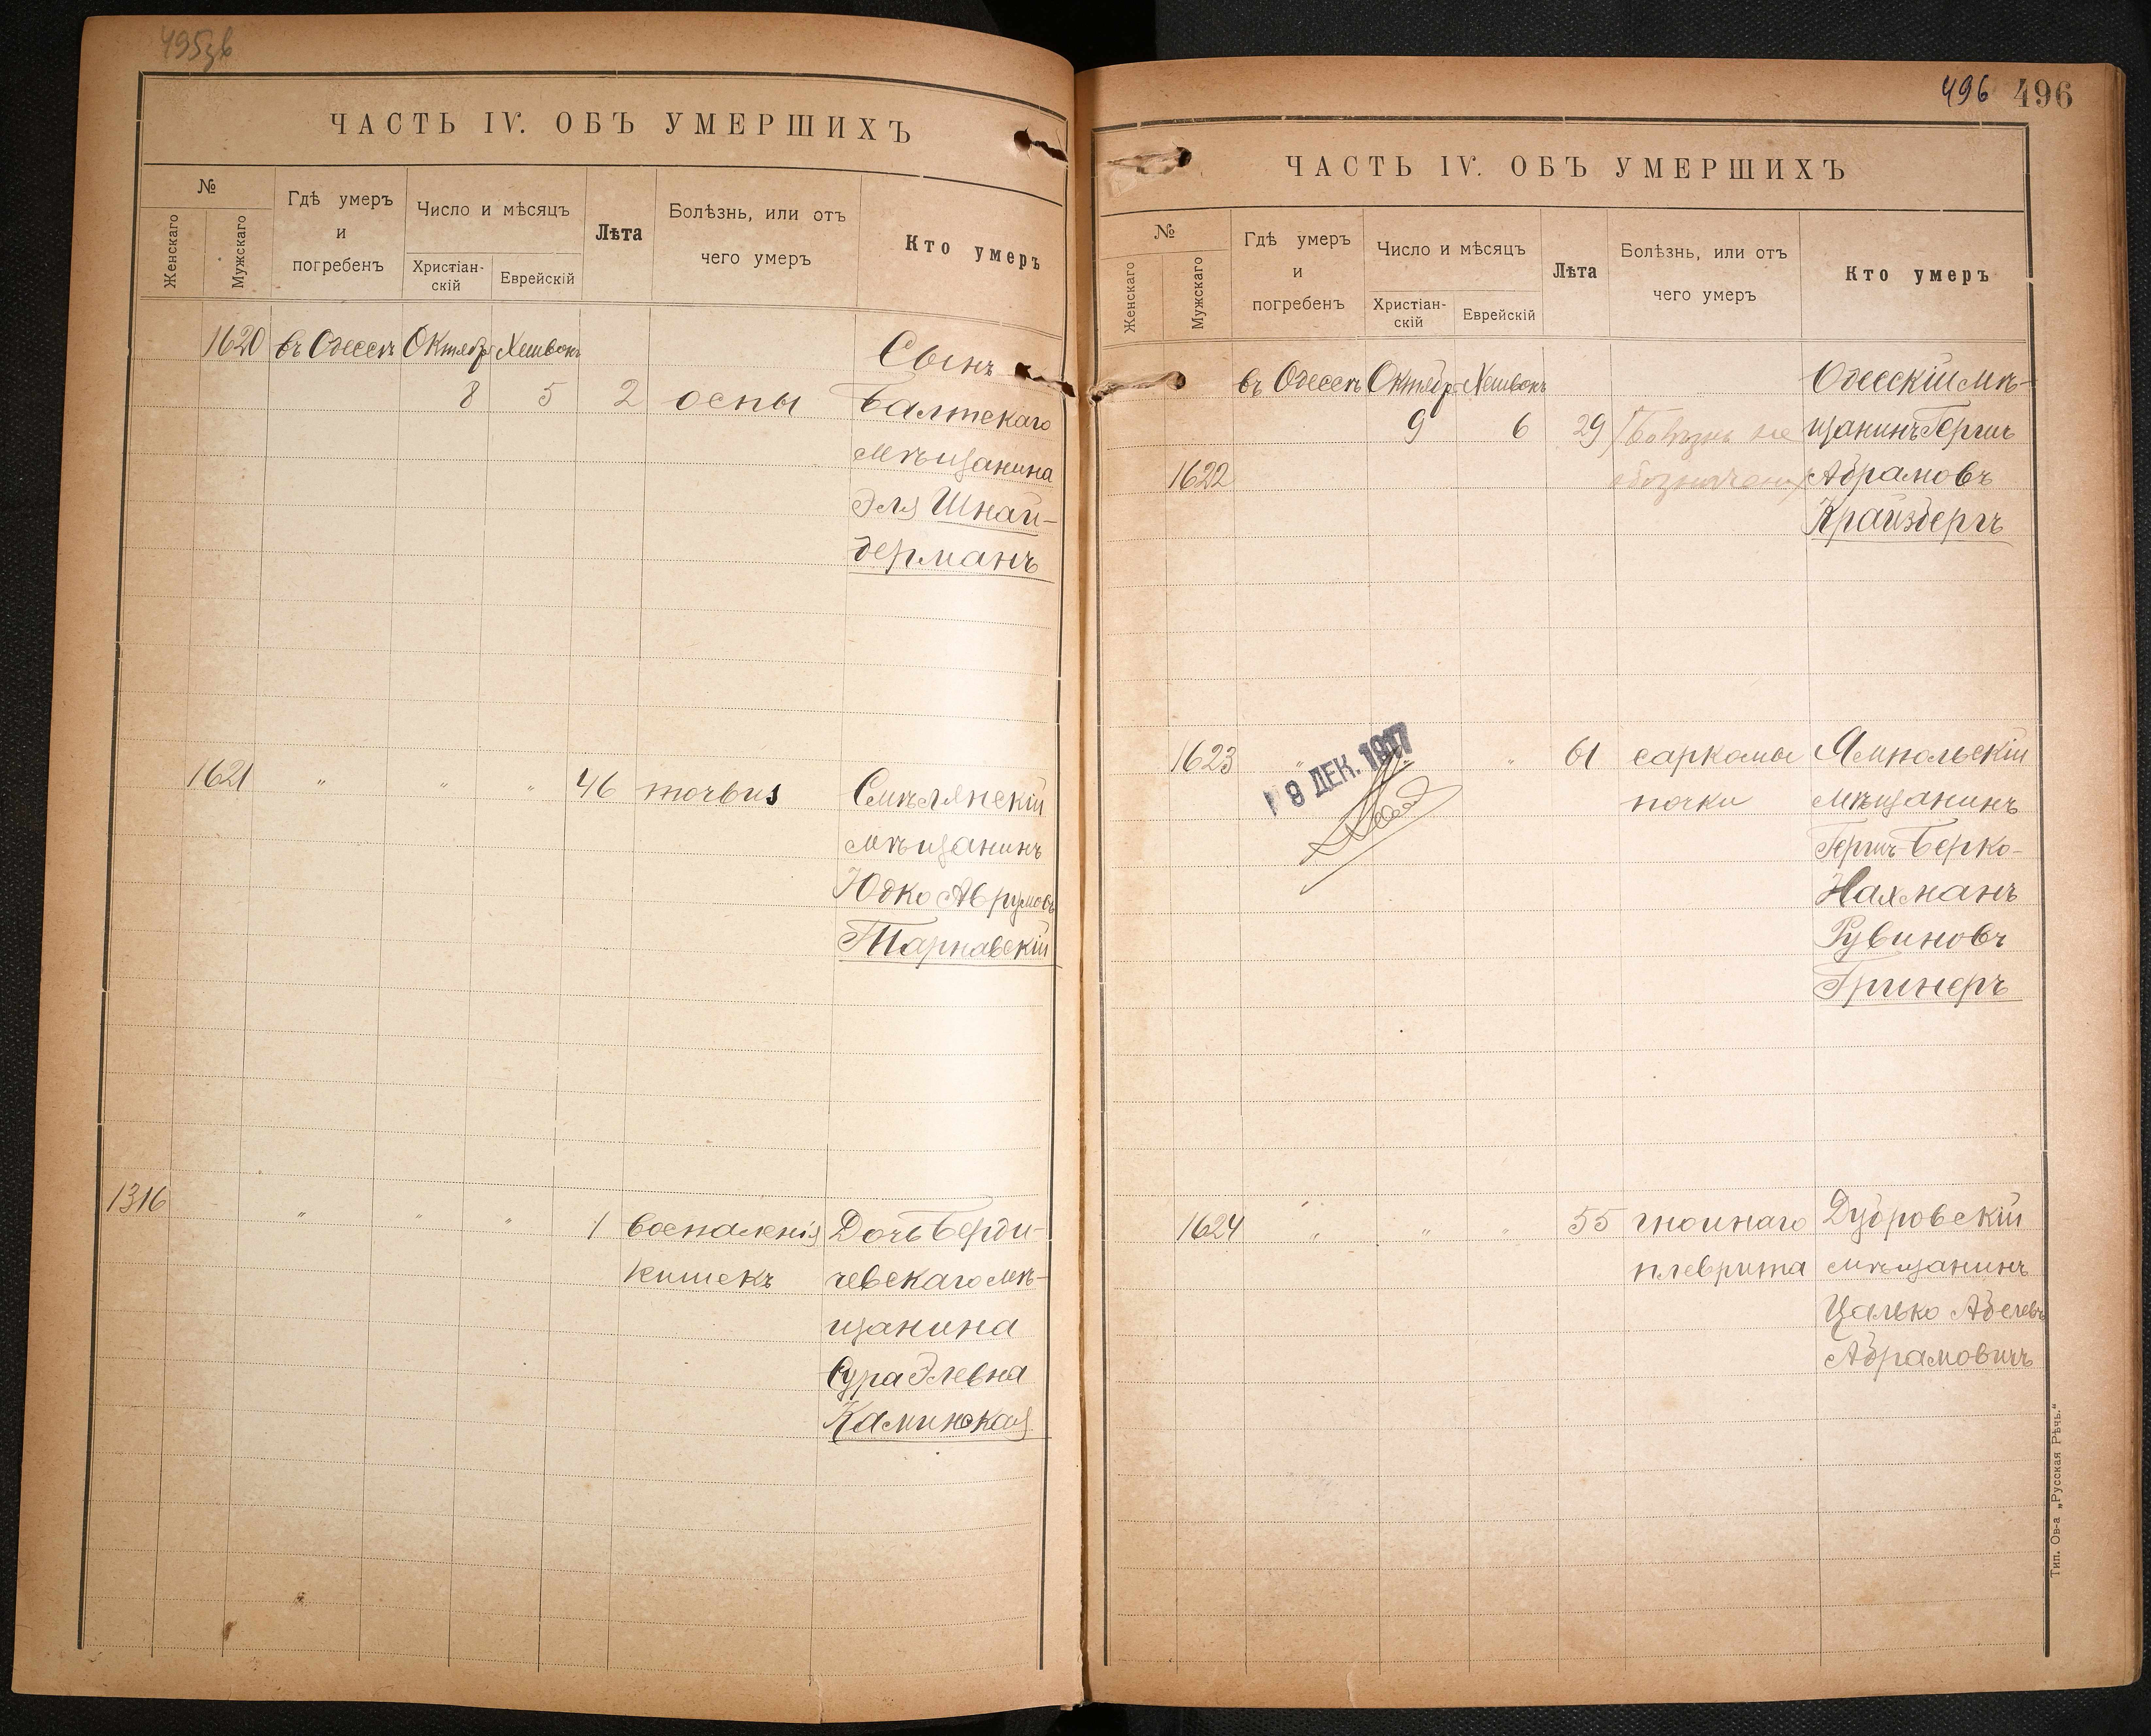 495зв
ЧАСТЬ IV. ОБЪ УМЕРШИХЪ
№
Женскаго
Мужскаго
Гдѣ умеръ
и
погребенъ
Число и мѣсяцъ
Христіан-
скій
Еврейскій
Лѣта
Болѣзнь, или отъ
чего умеръ
Кто умеръ
1620 въ Одессѣ Октябр Хешвонъ Сынъ
8 5 2 оспы Балтскаго
мѣщанина
Эля Шнай-
дерманъ
1621 " " " 46 morbus Смѣлянскій
мѣщанинъ
Юдко Аврумовъ
Тарнавскій
1316 " " " 1 воспаленія Дочь Берди-
кишекъ чевскаго мѣ-
щанина
Сура Элевна
Каминская
496 496
ЧАСТЬ IV. ОБЪ УМЕРШИХЪ
№
Женскаго
Мужскаго
Гдѣ умеръ
и
погребенъ
Число и мѣсяцъ
Христіан-
скій
Еврейскій
Лѣта
Болѣзнь, или отъ
чего умеръ
Кто умеръ
въ Одессѣ Октябр Хешвонъ Одесскій мѣ-
9 6 29 Болѣзнь не щанинъ Гершъ
1622 обозначена Абрамовъ
Крайзбергъ
1623 " " 61 саркомы Ямпольскій
почки мѣщанинъ
Гершъ-Берко-
Нахманъ
Рувиновъ
Гринеръ
9 ДЕК. 1917
1624 " " " 55 гнойнаго Дубровскій
плеврита мѣщанинъ
Цалько Абелевъ
Абрамовичъ
Тип. Ов-а „Русская Рѣчь.“